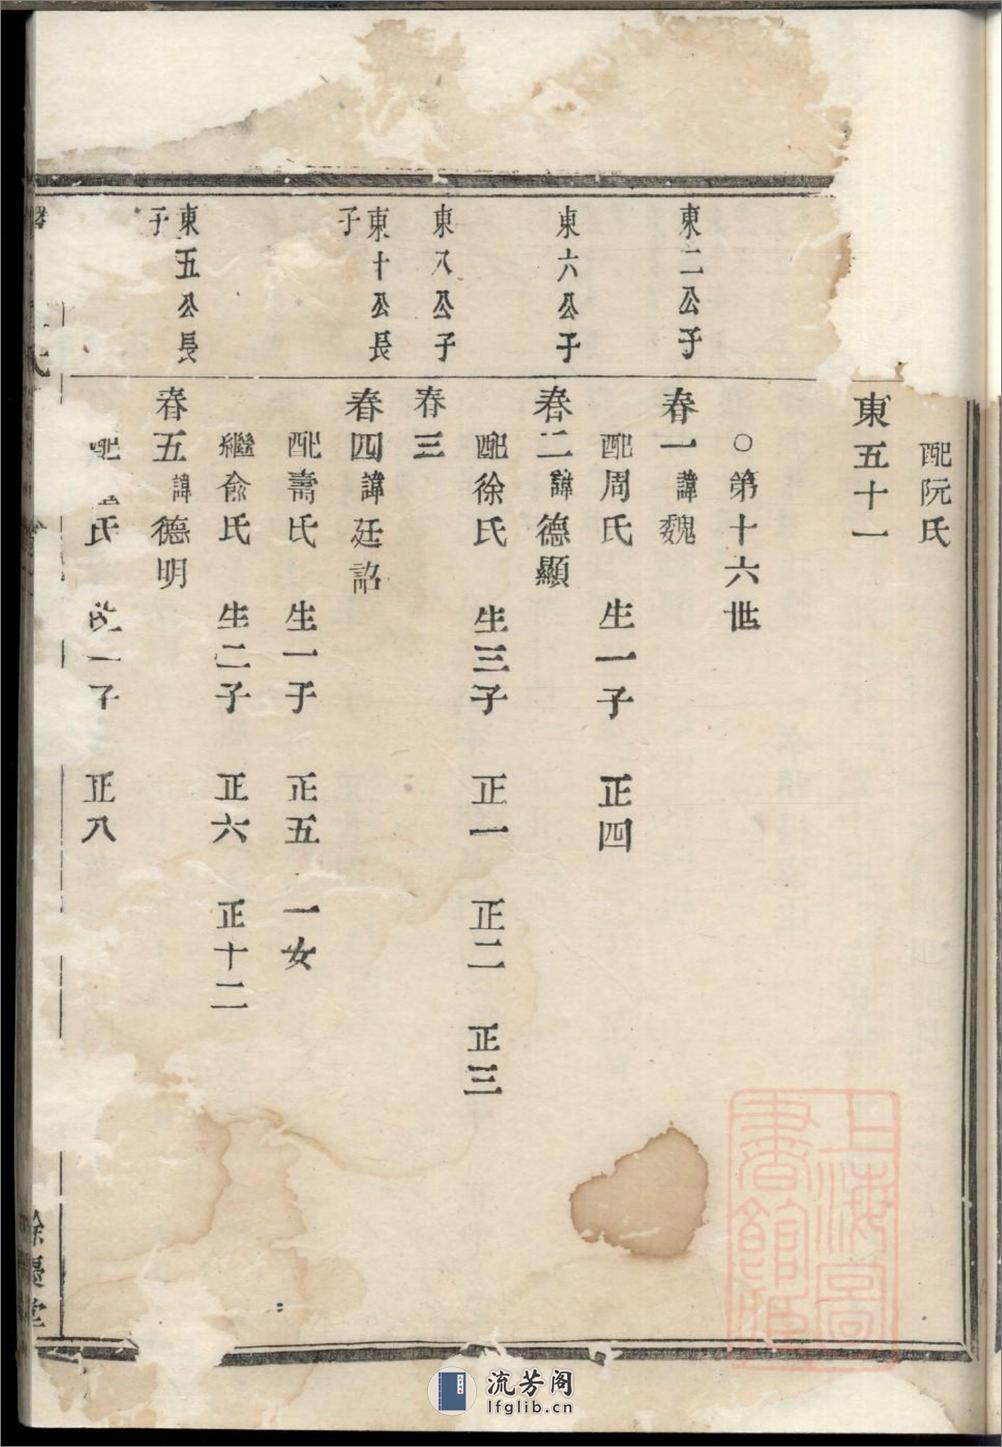 配阮氏
東五十一
○第十六世
東二公子
春一諱魏
配周氏 生一子 正四
東六公子
春二諱德顯
配徐氏 生三子 正一 正二 正三
東八公子
春三
東十公長子
春四諱廷詔
配壽氏 生一子 正五 一女
繼俞氏 生二子 正六 正十二
東五公長子
春五諱德明
配 氏 一子 正八
餘慶堂
上海圖書館藏
流芳阁
lfglib.cn